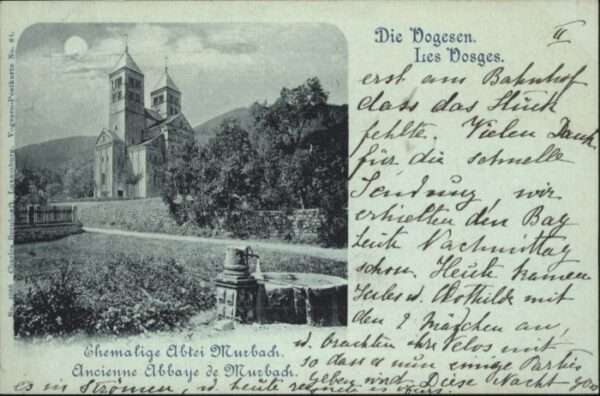 Die Vogesen.
Les Vosges.
II
erst am Bahnhof
dass das Stück
fehlte. Vielen Dank
für die schnelle
Sendung, wir
erhielten den Bag
heute Nachmittag
schon. Heute kamen
Jules u. Clothilde mit
den 2 Mädchen an,
u. brachten ihre Velos mit
so dass nun einige Parties
geben wird. Diese Nacht
es in Strömen, u. heute
Ehemalige Abtei Murbach.
Ancienne Abbaye de Murbach.
Vogesen-Postkarte No.